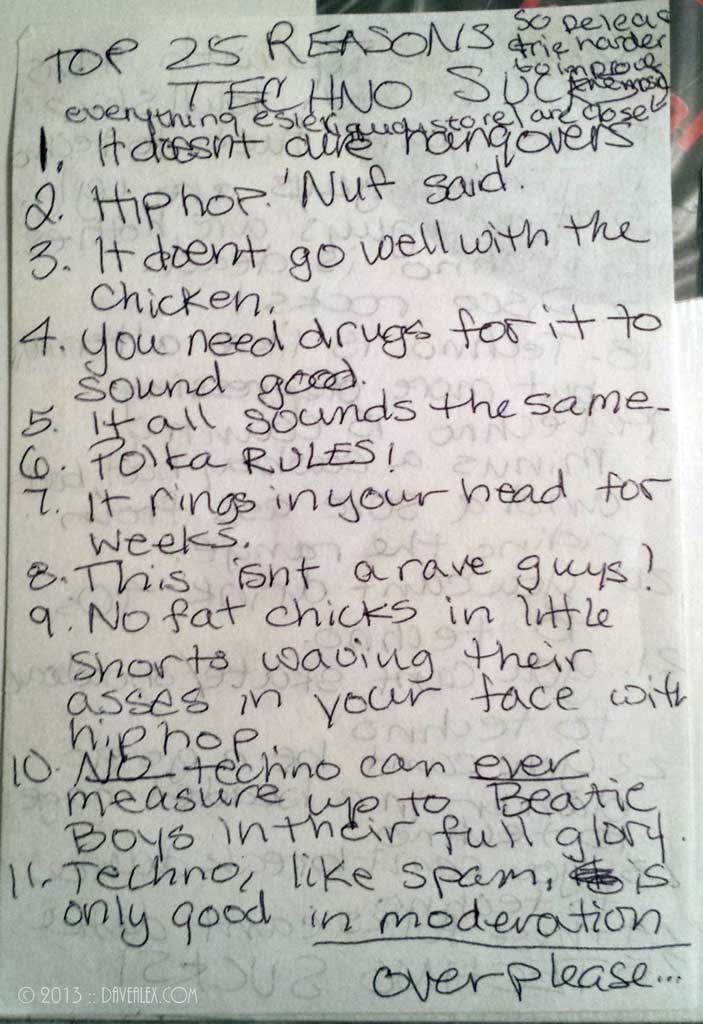 TOP 25 REASONS
TECHNO SUCKS
so
harder
to improve
everything
1. It doesnt cure hangovers
2. Hiphop. 'Nuf said.
3. It doent go well with the
chicken.
4. you need drugs for it to
sound good.
5. It all sounds the same-
6. Polka RULES!
7. It rings in your head for
weeks.
8. This isnt a rave guys!
9. No fat chicks in little
shorts waving their
asses in your face with
hiphop.
10. NO techno can ever
measure up to Beatie
Boys in their full glory.
11. Techno, like spam, is
only good in moderation
over please...
© 2013 :: DAVEALEX.COM